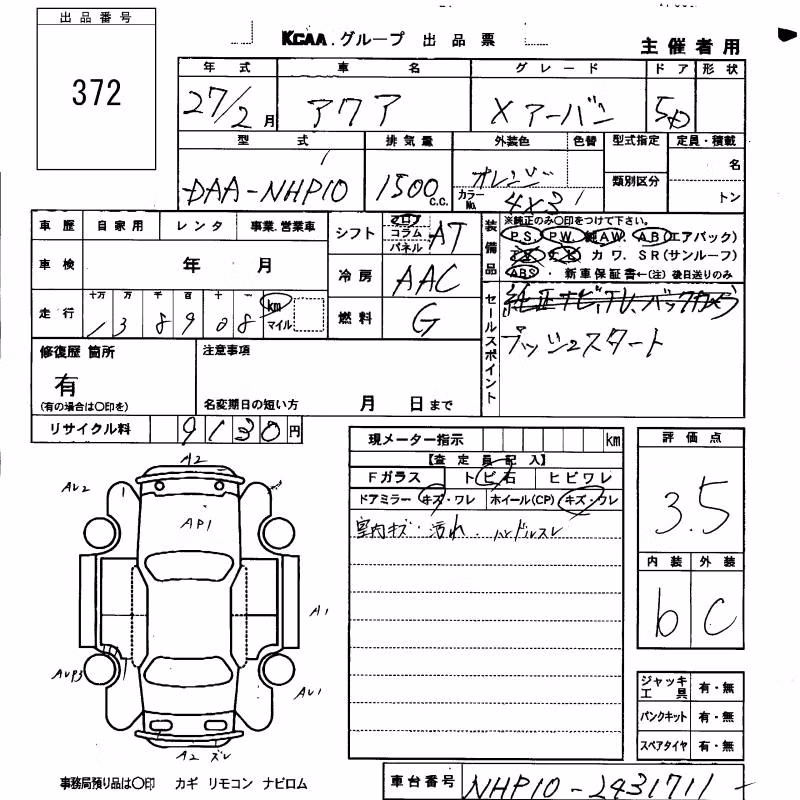 出品番号
372
KCAA.グループ 出品票
主催者用
年式 車名 グレード ドア 形状
27/2月 アクア Xアーバン 5D
型式 排気量 外装色 色替 型式指定 定員・積載
DAA-NHP10 1500c.c. オレンジ 類別区分 名
カラーNo. 4X3 トン
車歴 自家用 レンタ 事業.営業車
シフト フロア コラム パネル AT
装備品
※純正のみ〇印をつけて下さい。
P S. P W. 純A W. A B(エアバック)
カ ワ. S R(サンルーフ)
ABS. 新車保証書←(注)後日送りのみ
車検 年 月
冷房 AAC
走行 十万 万 千 百 十 一 km マイル
1 3 8 9 0 8
燃料 G
セールスポイント
純正ナビ、TV、バックカメラ
プッシュスタート
修復歴 箇所
有
(有の場合は〇印を)
注意事項
名変期日の短い方 月 日まで
リサイクル料 9130円
現メーター指示 km
【査定員記入】
Fガラス トビ石 ヒビワレ
ドアミラー キズ・ワレ ホイール(CP) キズ・ワレ
室内キズ・汚れ・ハンドルスレ
評価点
3.5
内装 外装
b C
A2
AU2
AP1
A1
AUP3
AU1
A2 ズレ
ジャッキ工具 有・無
パンクキット 有・無
スペアタイヤ 有・無
事務局預り品は〇印 カギ リモコン ナビロム
車台番号 NHP10-2431711